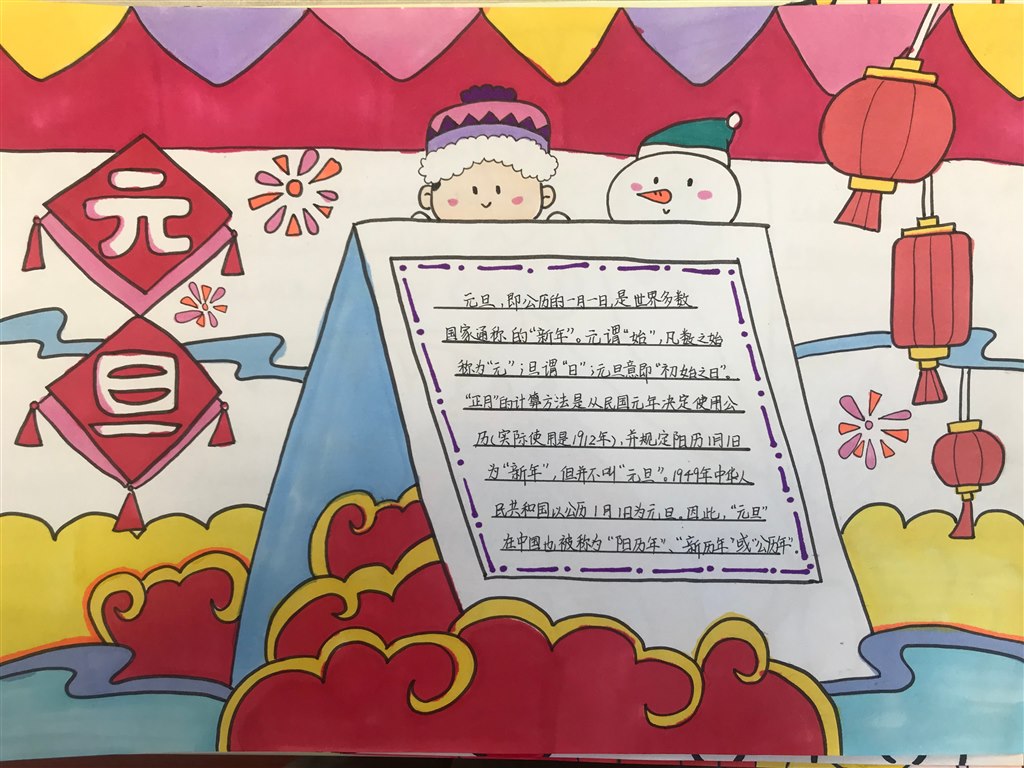 元
旦
元旦，即公历的一月一日，是世界多数
国家通称的“新年”。元谓“始”，凡数之始
称为“元”；旦谓“日”；元旦意即“初始之日”。
“正月”的计算方法是从民国元年决定使用公
历（实际使用是1912年），并规定阳历1月1日
为“新年”，但并不叫“元旦”。1949年中华人
民共和国以公历1月1日为元旦，因此，“元旦”
在中国也被称为“阳历年”、“新历年”或“公历年”。